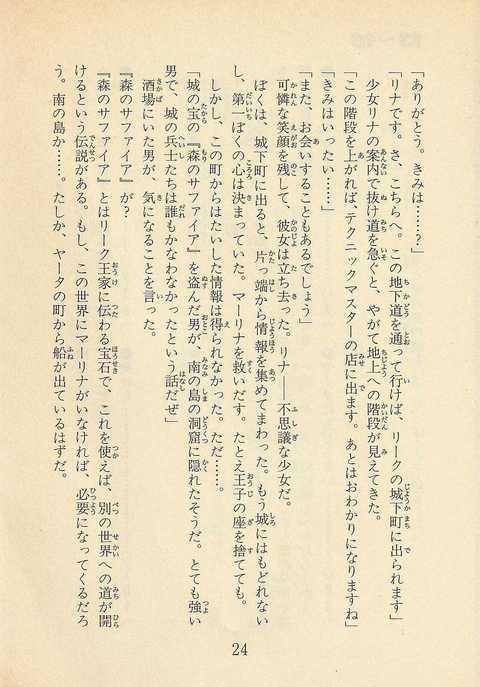 「ありがとう。きみは……？」
「リナです。さ、こちらへ。この地下道を通って行けば、リークの城下町に出られます」
少女リナの案内で抜け道を急ぐと、やがて地上への階段が見えてきた。
「この階段を上がれば、テクニックマスターの店に出ます。あとはおわかりになりますね」
「きみはいったい……」
「また、お会いすることもあるでしょう」
可憐な笑顔を残して、彼女は立ち去った。リナ——不思議な少女だ。
ぼくは、城下町に出ると、片っ端から情報を集めてまわった。もう城にはもどれない
し、第一ぼくの心は決まっていた。マーリナを救いだす。たとえ王子の座を捨てても。
しかし、この町からはたいした情報は得られなかった。ただ……。
「城の宝の『森のサファイア』を盗んだ男が、南の島の洞窟に隠れたそうだ。とても強い
男で、城の兵士たちは誰もかなわなかったという話だぜ」
酒場にいた男が、気になることを言った。
『森のサファイア』が？
『森のサファイア』とはリーク王家に伝わる宝石で、これを使えば、別の世界への道が開
けるという伝説がある。もし、この世界にマーリナがいなければ、必要になってくるだろ
う。南の島か……。たしか、ヤータの町から船が出ているはずだ。
24